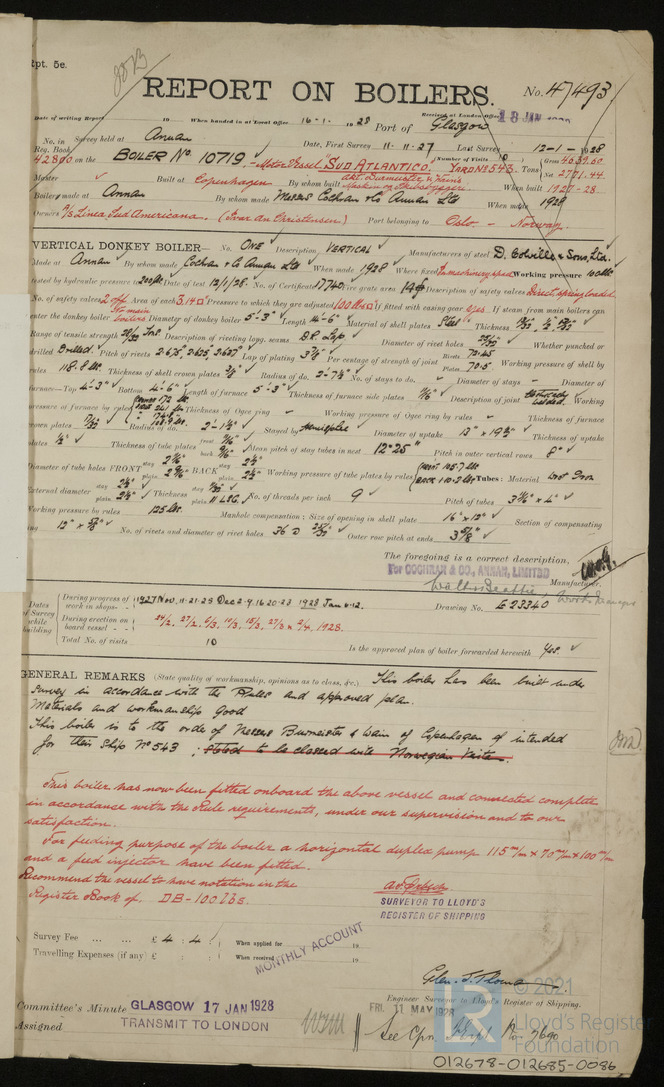 Rpt. 5e.
REPORT ON BOILERS.
No. 47493
Date of writing Report 19 When handed in at Local Office 16-1-1928 Port of Glasgow
Received at London Office 18 JAN
No. in Survey held at Annan Date, First Survey 11-11-27 Last Survey 12-1-1928
Reg. Book.
42800 on the BOILER No. 10719 - Motor Vessel "SUD ATLANTICO", YARD No 543. (Number of Visits 10) Tons Gross 4639.60 Net 2771.44
Master Built at Copenhagen By whom built Akt. Burmeister & Wain's When built 1927-28
Boilers made at Annan By whom made Messrs Cochran & Co Annan Ltd When made 1928
Owners A/S Linea Sud Americana (Ivar An Christensen) Port belonging to Oslo - Norway
VERTICAL DONKEY BOILER— No. ONE Description VERTICAL Manufacturers of steel D. Colville & Sons, Ltd.
Made at Annan By whom made Cochran & Co Annan Ltd When made 1928 Where fixed In machinery space Working pressure 100 lbs
tested by hydraulic pressure to 200 lbs Date of test 12/1/28 No. of Certificate 17740 Fire grate area Description of safety valves Direct spring loaded
No. of safety valves 2 off Area of each 3.14 Pressure to which they are adjusted 100 lbs If fitted with easing gear yes If steam from main boilers can
enter the donkey boiler No main boilers Diameter of donkey boiler 5'-3" Length 14'-6" Material of shell plates Steel Thickness
Range of tensile strength Description of riveting long. seams D.R. Lap Diameter of rivet holes Whether punched or
drilled Drilled Pitch of rivets 2.675, 2.625, 2.687 Lap of plating 3 7/8" Per centage of strength of joint Rivets 70.45 Plates 70.5 Working pressure of shell by
rules 118.8 lbs Thickness of shell crown plates Radius of do. 2'-7½" No. of stays to do. Diameter of stays - Diameter of
furnace—Top 4'-3" Bottom 4'-6" Length of furnace 5'-3" Thickness of furnace side plates 11/16" Description of joint welded Working
pressure of furnace by rules Thickness of furnace
crown plates 17/32" Radius of do. 2'-1½" Stayed by Diameter of uptake Thickness of uptake
plates ½" Thickness of tube plates front back Mean pitch of stay tubes in nest 12.25" Pitch in outer vertical rows 8"
Diameter of tube holes FRONT stay plain BACK stay plain Working pressure of tube plates by rules Tubes: Material Wrot Iron
External diameter stay 2½" plain 2½" Thickness stay plain 11 LSG No. of threads per inch 9 Pitch of tubes 3 13/16" x 4"
Working pressure by rules 125 lbs. Manhole compensation: Size of opening in shell plate 16" x 12" Section of compensating
ring No. of rivets and diameter of rivet holes 36 Outer row pitch at ends 3 5/8"
The foregoing is a correct description,
For COCHRAN & CO., ANNAN, LIMITED
Manufacturer.
Works Manager
Dates of Survey while building
During progress of work in shops - - 1927 Nov. 11-21-28 Dec 2-9-16-20-23 1928 Jan 6-12.
During erection on board vessel - - - 24/2, 27/2, 6/3, 14/3, 15/3, 27/3 & 2/4, 1928.
Total No. of visits 10
Drawing No. E 23340
Is the approved plan of boiler forwarded herewith Yes.
GENERAL REMARKS (State quality of workmanship, opinions as to class, &c.) This boiler has been built under
survey in accordance with the Rules and approved plan.
Materials and workmanship good
This boiler is to the order of Messrs Burmeister & Wain of Copenhagen & intended
for their Ship No 543 ; stated to be classed with Norwegian Veritas.
This boiler has now been fitted onboard the above vessel and connected complete
in accordance with the Rule requirements, under our supervision and to our
satisfaction.
For feeding purpose of the boiler a horizontal duplex pump 115 m/m x 75 m/m x 100 m/m
and a feed injector have been fitted.
Recommend the vessel to have notation in the
Register Book of, DB-100 lbs.
SURVEYOR TO LLOYD'S
REGISTER OF SHIPPING
Survey Fee ... ... £ 4 : 4 : When applied for 19
Travelling Expenses (if any) £ : : When received 19
MONTHLY ACCOUNT
Engineer Surveyor to Lloyd's Register of Shipping.
Committee's Minute GLASGOW 17 JAN 1928
FRI. 11 MAY 1928
Assigned TRANSMIT TO LONDON
© 2021
Lloyd's Register
Foundation
012678-012685-0086